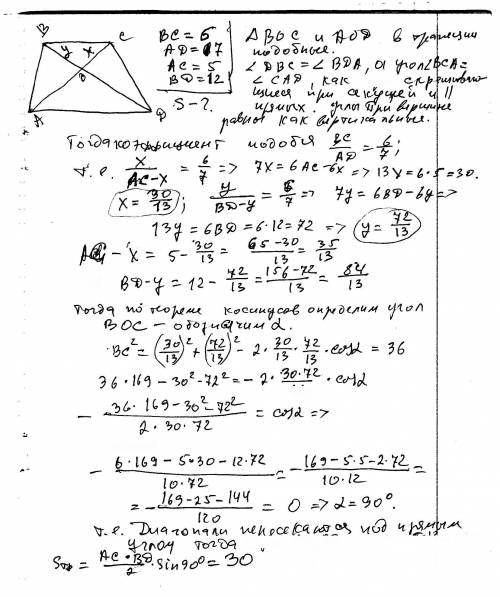 B C
y x
O
A D
BC = 6
AD = 7
AC = 5
BD = 12
S - ?
△BOC и AOD в трапеции
подобные.
∠DBC = ∠BDA, а угол ∠BCA =
∠CAD, как скрещиваю
щиеся при секущей и ||
прямых. углы при вершине
равны как вертикальные.
Тогда коэффициент подобия BC/AD = 6/7;
т.е. x/(AC-x) = 6/7 => 7x = 6AC - 6x => 13x = 6·5 = 30.
x = 30/13; y/(BD-y) = 6/7 => 7y = 6BD - 6y =>
13y = 6BD = 6·12 = 72 => y = 72/13
AC - x = 5 - 30/13 = (65-30)/13 = 35/13
BD - y = 12 - 72/13 = (156-72)/13 = 84/13
Тогда по теореме косинусов определим угол
BOC - обозначим α.
BC² = (30/13)² + (72/13)² - 2·30/13·72/13·cosα = 36
36·169 - 30² - 72² = -2·30·72·cosα
- (36·169 - 30² - 72²)/(2·30·72) = cosα =>
- (6·169 - 5·30 - 12·72)/(10·72) = - (169 - 5·5 - 2·72)/(10·12) =
= - (169 - 25 - 144)/120 = 0 => α = 90°.
т.е. Диагонали пересекаются под прямым
углом тогда
Sтр = (AC·BD)/2 · sin90° = 30